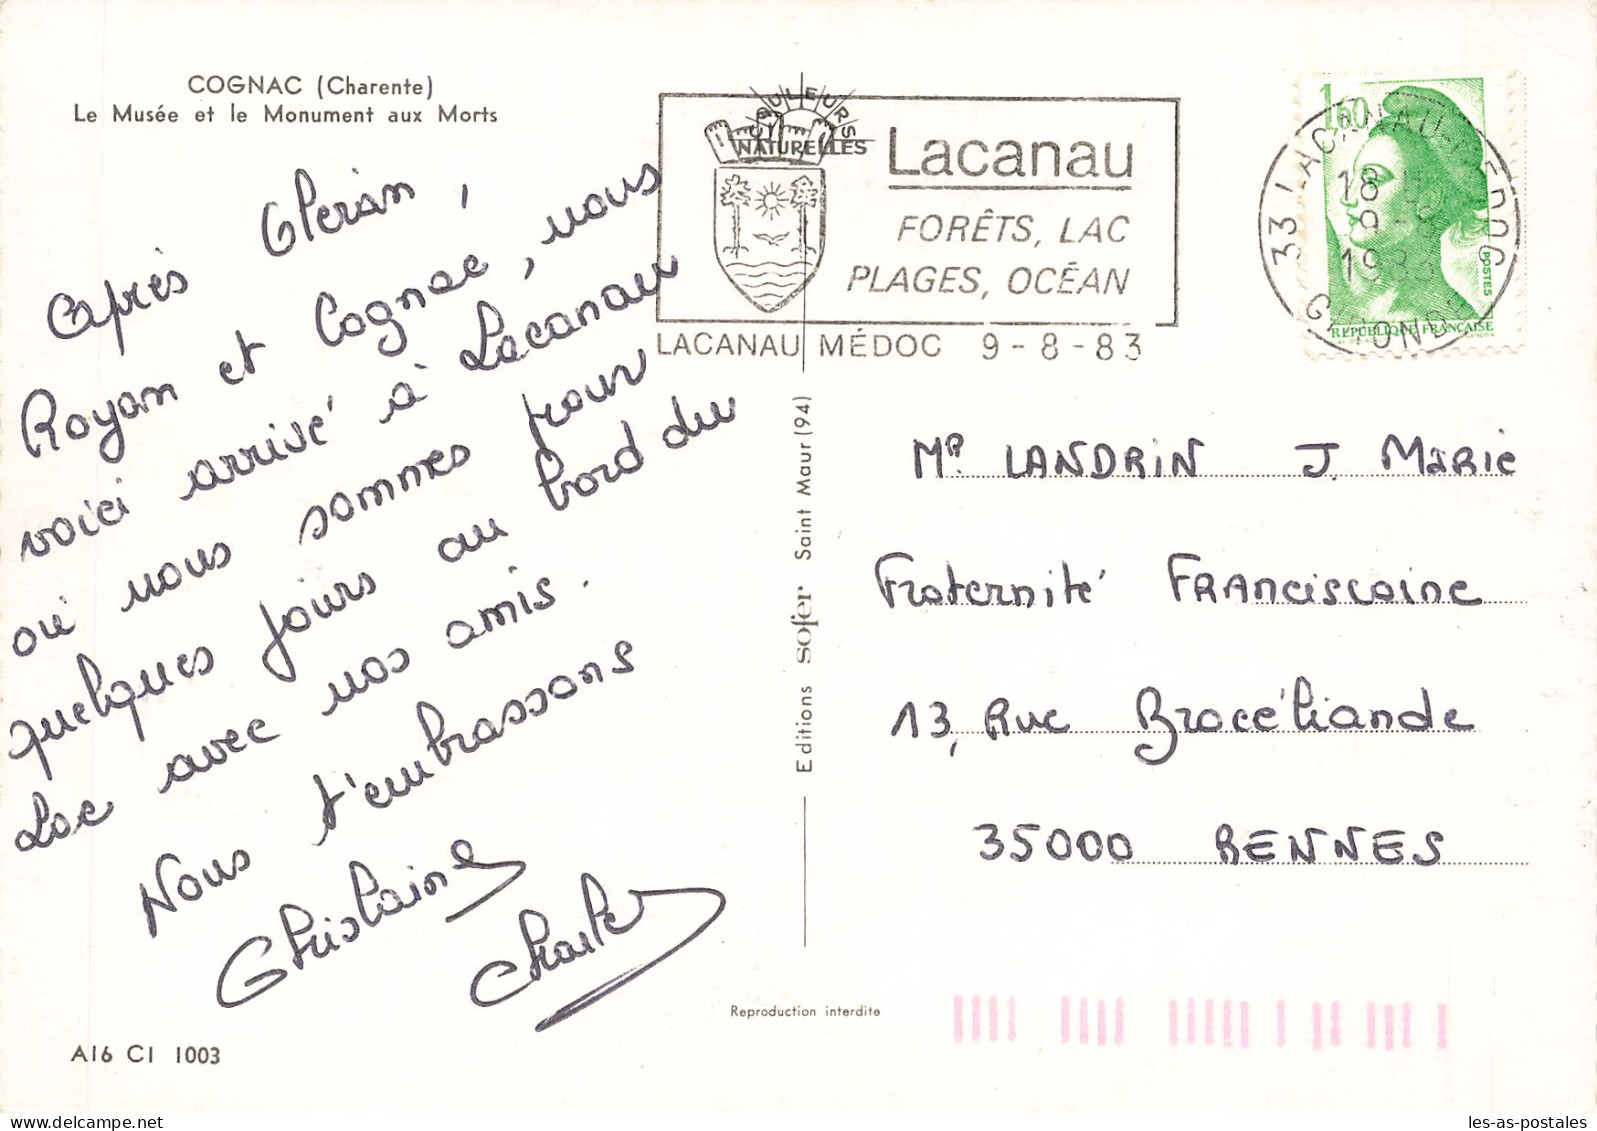 COGNAC (Charente)
Le Musée et le Monument aux Morts
Après Oléron,
Royan et Cognac, nous
voici arrivé à Lacanau
où nous sommes pour
quelques jours au bord du
Lac avec nos amis.
Nous t'embrassons
Ghislaine
Charles
A16 CI 1003
COULEURS
NATURELLES
Lacanau
FORÊTS, LAC
PLAGES, OCÉAN
LACANAU MÉDOC 9-8-83
33 LACANAU-MEDOC
18 H
9-8
1983
GIRONDE
1,60
POSTES
REPUBLIQUE FRANÇAISE
Editions sofer Saint Maur (94)
Mr LANDRIN J. Marie
Fraternité FRANciscaine
13, Rue Brocéliande
35000 RENNES
Reproduction interdite
les-as-postales